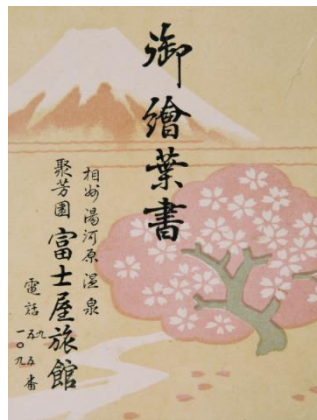 御繪葉書
相州湯河原温泉
聚芳園 富士屋旅館
電話 九 五五 一〇九 番